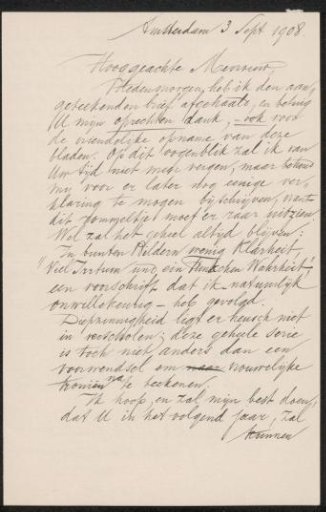 Amsterdam 3 Sept 1908.
Hooggeachte Mevrouw,
Hedenmorgen heb ik den aan-
geteekenden brief afgehaald, en betuig
U mijn oprechten dank, – ook voor
de vriendelijke opname van deze
bladen. Op dit oogenblik zal ik van
Uw tijd niet meer vergen, maar
mij voor er later nog eenige ver-
klaring te mogen bijschrijven, want
dit moet er raar uitzien.
Wel zal het geheel altijd blijven:
"In bunten Bildern wenig Klarheit,
"Viel Irrtum und ein Fünkchen Wahrheit"
een voorschrift dat ik natuurlijk
onwillekeurig – heb gevolgd.
Diepzinnigheid ligt er heusch niet
in verscholen; deze geheele serie
is toch niet anders dan een
voorwendsel om vrouwelijke
te bekomen.
Ik hoop, en zal mijn best doen,
dat U in het volgend jaar, zal
kunnen